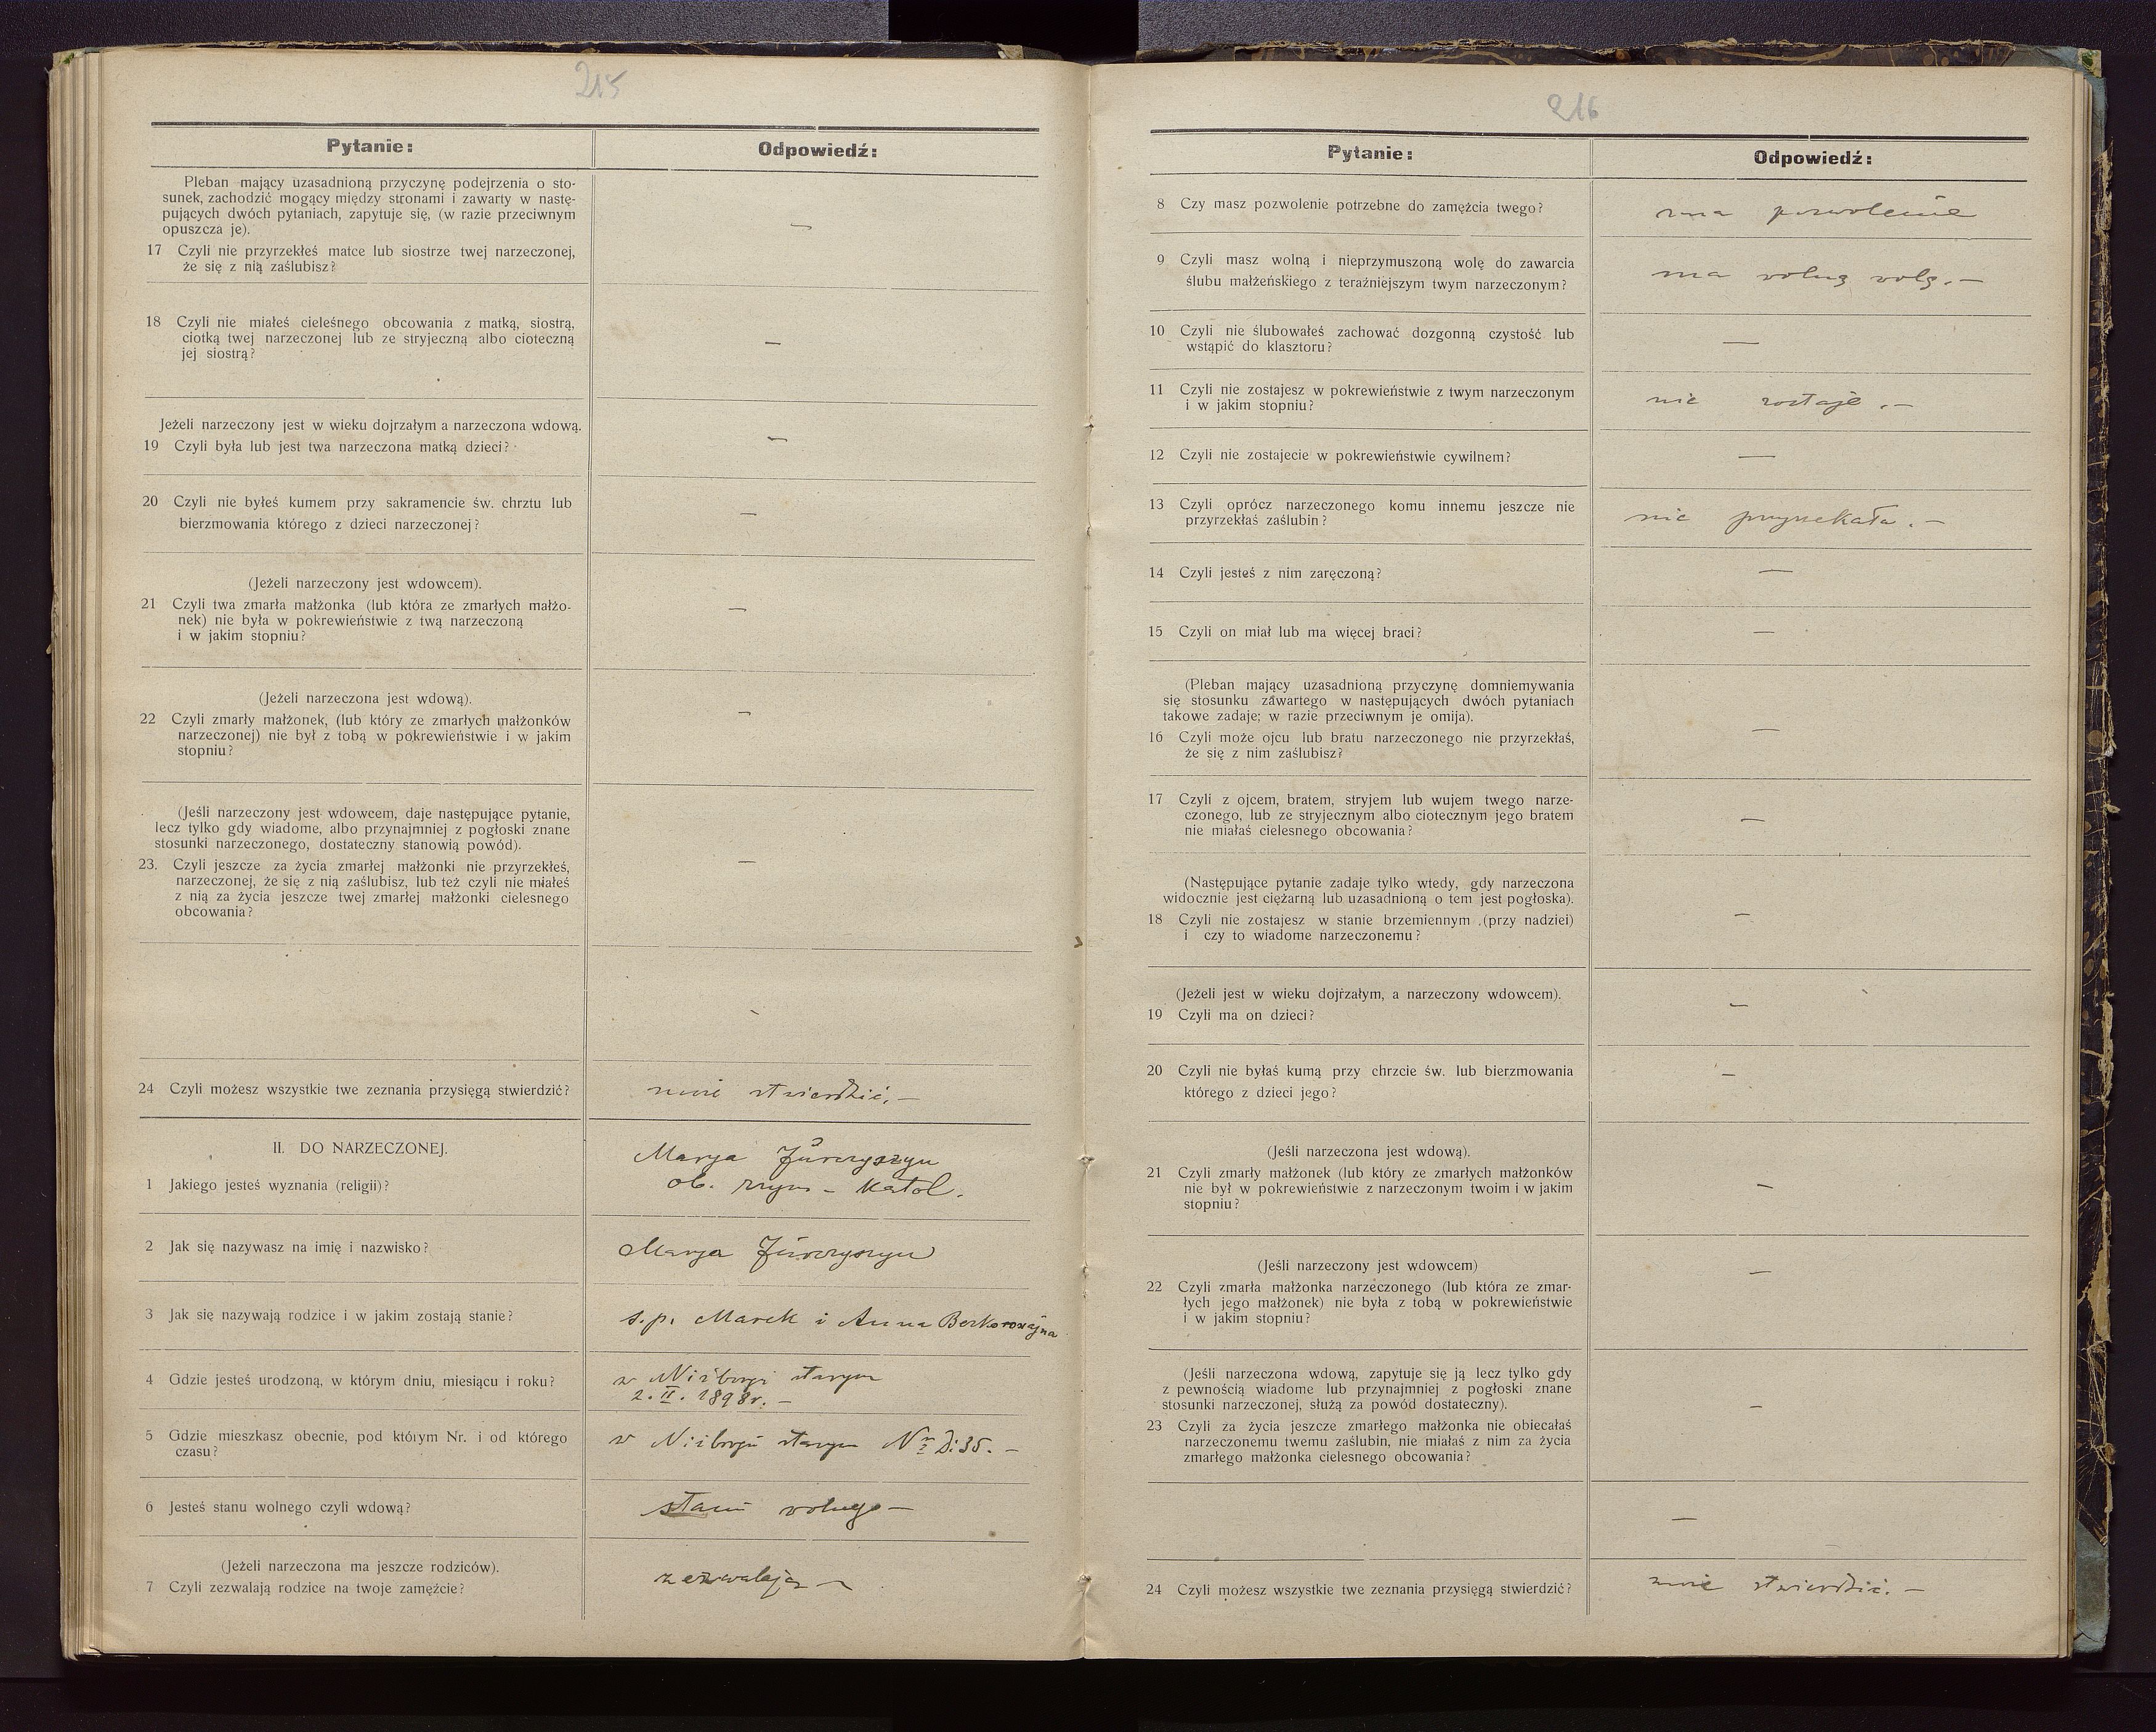 215
Pytanie:
Odpowiedź:
Pleban mający uzasadnioną przyczynę podejrzenia o sto-
sunek, zachodzić mogący między stronami i zawarty w nastę-
pujących dwóch pytaniach, zapytuje się, (w razie przeciwnym
opuszcza je).
17 Czyli nie przyrzekłeś matce lub siostrze twej narzeczonej,
że się z nią zaślubisz?
—
18 Czyli nie miałeś cieleśnego obcowania z matką, siostrą,
ciotką twej narzeczonej lub ze stryjeczną albo cioteczną
jej siostrą?
—
Jeżeli narzeczony jest w wieku dojrzałym a narzeczona wdową.
19 Czyli była lub jest twa narzeczona matką dzieci?
—
20 Czyli nie byłeś kumem przy sakramencie św. chrztu lub
bierzmowania którego z dzieci narzeczonej?
—
(Jeżeli narzeczony jest wdowcem).
21 Czyli twa zmarła małżonka (lub która ze zmarłych małżo-
nek) nie była w pokrewieństwie z twą narzeczoną
i w jakim stopniu?
—
(Jeżeli narzeczona jest wdową).
22 Czyli zmarły małżonek, (lub który ze zmarłych małżonków
narzeczonej) nie był z tobą w pokrewieństwie i w jakim
stopniu?
—
(Jeśli narzeczony jest wdowcem, daje następujące pytanie,
lecz tylko gdy wiadome, albo przynajmniej z pogłoski znane
stosunki narzeczonego, dostateczny stanowią powód).
23. Czyli jeszcze za życia zmarłej małżonki nie przyrzekłeś,
narzeczonej, że się z nią zaślubisz, lub też czyli nie miałeś
z nią za życia jeszcze twej zmarłej małżonki cielesnego
obcowania?
—
24 Czyli możesz wszystkie twe zeznania przysięgą stwierdzić?
może stwierdzić. —
II. DO NARZECZONEJ.
1 Jakiego jesteś wyznania (religii)?
Marya Jurczyszyn
ob. rzym - katol.
2 Jak się nazywasz na imię i nazwisko?
Marya Jurczyszyn
3 Jak się nazywają rodzice i w jakim zostają stanie?
s.p. Marek i Anna Berkorowajna
4 Gdzie jesteś urodzoną, w którym dniu, miesiącu i roku?
w Niżborgu starym
2. II. 1898r. —
5 Gdzie mieszkasz obecnie, pod którym Nr. i od którego
czasu?
w Niżborgu starym Nr D: 35. —
6 Jesteś stanu wolnego czyli wdową?
stanu wolnego —
(Jeżeli narzeczona ma jeszcze rodziców).
7 Czyli zezwalają rodzice na twoje zamęźcie?
zezwalają —
216
Pytanie:
Odpowiedź:
8 Czy masz pozwolenie potrzebne do zamężcia twego?
ma pozwolenie
9 Czyli masz wolną i nieprzymuszoną wolę do zawarcia
ślubu małżeńskiego z teraźniejszym twym narzeczonym?
ma wolną wolę. —
10 Czyli nie ślubowałeś zachować dozgonną czystość lub
wstąpić do klasztoru?
—
11 Czyli nie zostajesz w pokrewieństwie z twym narzeczonym
i w jakim stopniu?
nie zostaje. —
12 Czyli nie zostajecie w pokrewieństwie cywilnem?
—
13 Czyli oprócz narzeczonego komu innemu jeszcze nie
przyrzekłaś zaślubin?
nie przyrzekała. —
14 Czyli jesteś z nim zaręczoną?
—
15 Czyli on miał lub ma więcej braci?
—
(Pleban mający uzasadnioną przyczynę domniemywania
się stosunku zawartego w następujących dwóch pytaniach
takowe zadaje; w razie przeciwnym je omija).
16 Czyli może ojcu lub bratu narzeczonego nie przyrzekłaś,
że się z nim zaślubisz?
—
17 Czyli z ojcem, bratem, stryjem lub wujem twego narze-
czonego, lub ze stryjecznym albo ciotecznym jego bratem
nie miałaś cielesnego obcowania?
—
(Następujące pytanie zadaje tylko wtedy, gdy narzeczona
widocznie jest ciężarną lub uzasadnioną o tem jest pogłoska).
18 Czyli nie zostajesz w stanie brzemiennym (przy nadziei)
i czy to wiadome narzeczonemu?
—
(Jeżeli jest w wieku dojrzałym, a narzeczony wdowcem).
19 Czyli ma on dzieci?
—
20 Czyli nie byłaś kumą przy chrzcie św. lub bierzmowania
którego z dzieci jego?
—
(Jeśli narzeczona jest wdową).
21 Czyli zmarły małżonek (lub który ze zmarłych małżonków
nie był w pokrewieństwie z narzeczonym twoim i w jakim
stopniu?
—
(Jeśli narzeczony jest wdowcem)
22 Czyli zmarła małżonka narzeczonego (lub która ze zmar-
łych jego małżonek) nie była z tobą w pokrewieństwie
i w jakim stopniu?
—
(Jeśli narzeczona wdową, zapytuje się ją lecz tylko gdy
z pewnością wiadome lub przynajmniej z pogłoski znane
stosunki narzeczonej, służą za powód dostateczny).
23 Czyli za życia jeszcze zmarłego małżonka nie obiecałaś
narzeczonemu twemu zaślubin, nie miałaś z nim za życia
zmarłego małżonka cielesnego obcowania?
—
—
24 Czyli możesz wszystkie twe zeznania przysięgą stwierdzić?
może stwierdzić. —